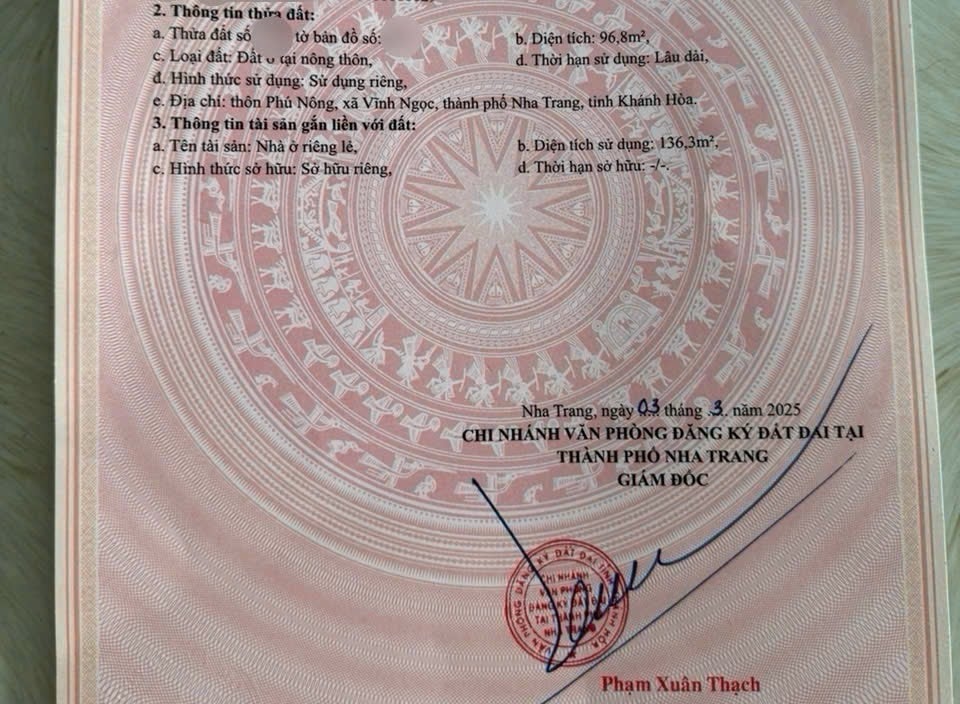 2. Thông tin thửa đất:
a. Thửa đất số tờ bản đồ số:
b. Diện tích: 96,8m²,
c. Loại đất: Đất ở tại nông thôn,
d. Thời hạn sử dụng: Lâu dài,
đ. Hình thức sử dụng: Sử dụng riêng,
e. Địa chỉ: thôn Phú Nông, xã Vĩnh Ngọc, thành phố Nha Trang, tỉnh Khánh Hòa.
3. Thông tin tài sản gắn liền với đất:
a. Tên tài sản: Nhà ở riêng lẻ,
b. Diện tích sử dụng: 136,3m²,
c. Hình thức sở hữu: Sở hữu riêng,
d. Thời hạn sở hữu: -/-.
Nha Trang, ngày 03 tháng 3. năm 2025
CHI NHÁNH VĂN PHÒNG ĐĂNG KÝ ĐẤT ĐAI TẠI
THÀNH PHỐ NHA TRANG
GIÁM ĐỐC
VĂN PHÒNG ĐĂNG KÝ ĐẤT ĐAI TỈNH KHÁNH HÒA
CHI NHÁNH
VĂN PHÒNG
ĐĂNG KÝ ĐẤT ĐAI
TẠI THÀNH PHỐ
NHA TRANG
Phạm Xuân Thạch